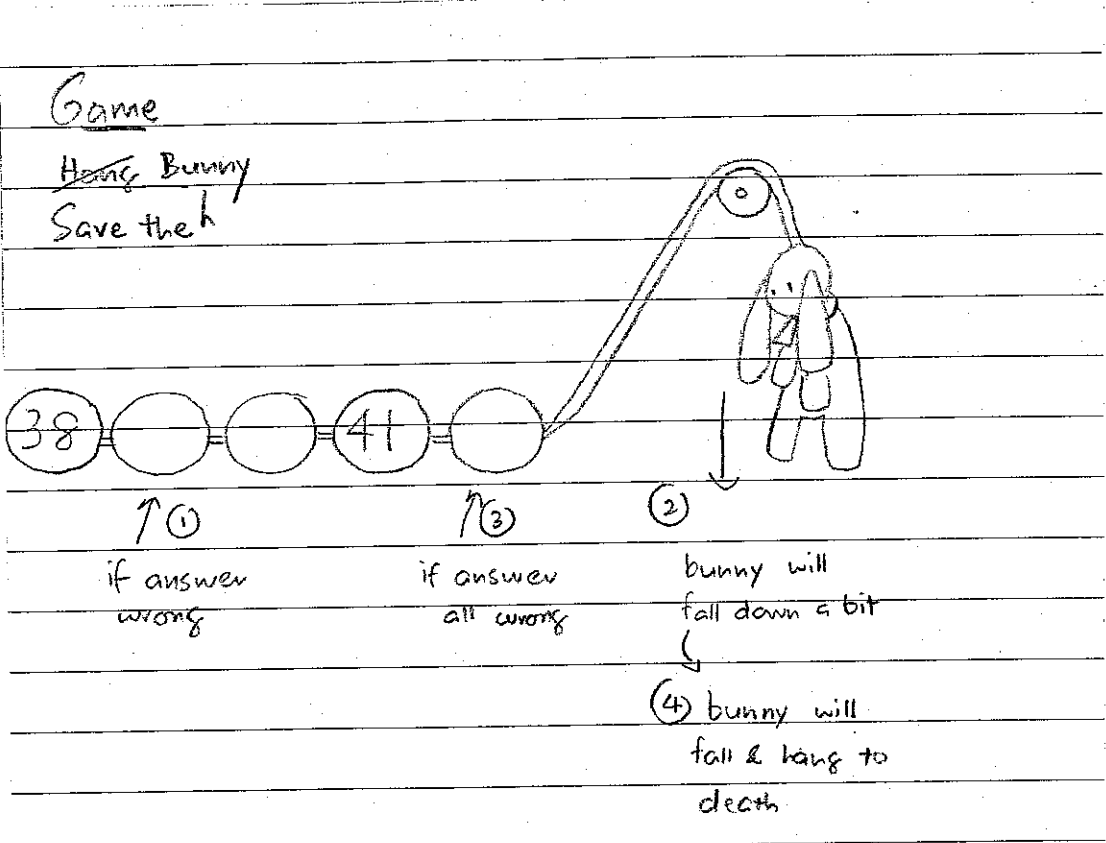 Game
Hang Bunny
Save the
38 41
① ③ ②
if answer
wrong
if answer
all wrong
bunny will
fall down a bit
④ bunny will
fall & hang to
death